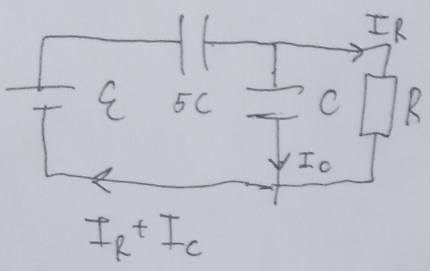 I_R
ℰ 5C C R
I_C
I_R + I_C